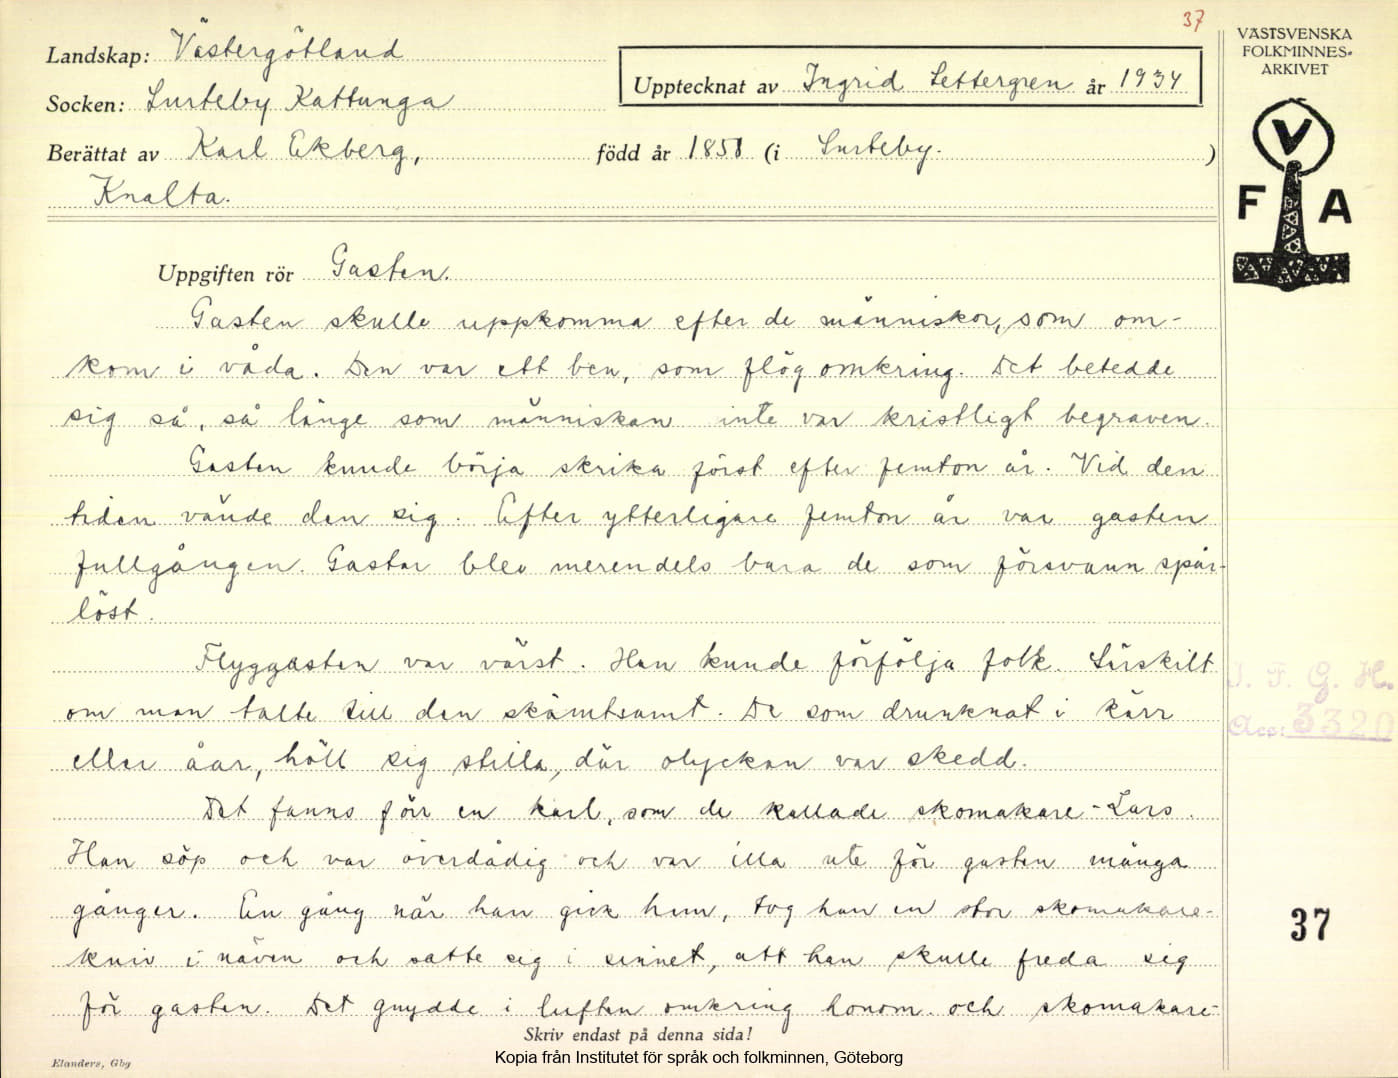 37
Landskap: Västergötland
Upptecknat av Ingrid Settergren år 1934
Socken: Surteby Kattunga
Berättat av Karl Ekberg, född år 1858 (i Surteby. )
Knalta.
VÄSTSVENSKA
FOLKMINNES-
ARKIVET
V
F A
Uppgiften rör Gasten.
Gasten skulle uppkomma efter de människor, som om-
kom i våda. Den var ett ben, som flög omkring. Det betedde
sig så, så länge som människan inte var kristligt begraven.
Gasten kunde börja skrika först efter femton år. Vid den
tiden vände den sig. Efter ytterligare femton år var gasten
fullgången. Gastar blev merendels bara de som försvann spår-
löst.
Flyggasten var värst. Han kunde förfölja folk. Särskilt
om man talte till den skämtsamt. De som drunknat i kärr
eller åar, höll sig stilla, där olyckan var skedd.
Det fanns förr en karl, som de kallade skomakare-Lars.
Han söp och var överdådig och var illa ute för gasten många
gånger. En gång när han gick hem, tog han en stor skomakare-
kniv i näven och satte sig i sinnet, att han skulle freda sig
för gasten. Det gnydde i luften omkring honom och skomakare-
I. F. G. H.
Acc: 3320
37
Skriv endast på denna sida!
Kopia från Institutet för språk och folkminnen, Göteborg
Elanders, Gbg